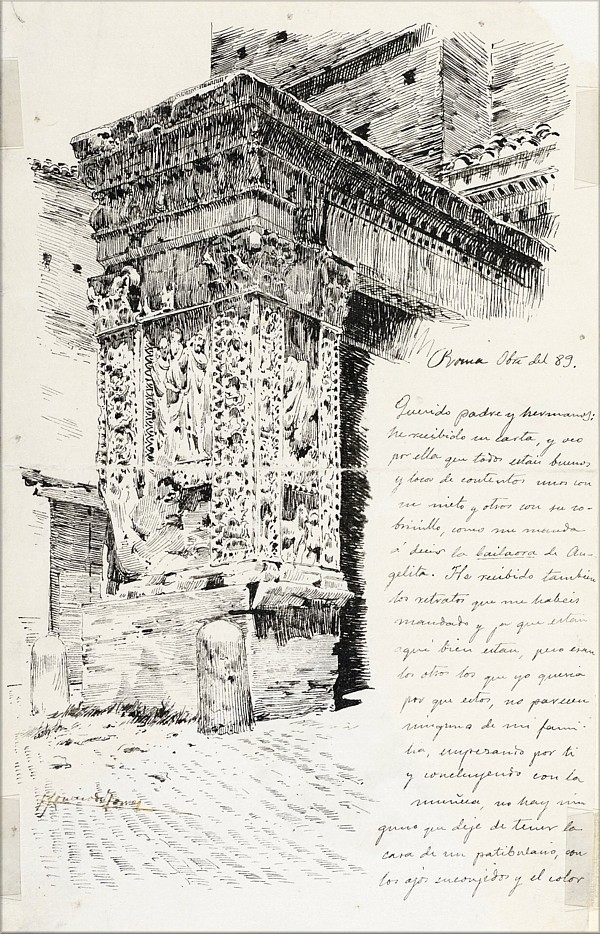 Roma Obre del 89.
Querido padre y hermanos:
he recibido su carta, y veo
por ella que todos estais buenos
y locos de contentos unos con
su nieto y otros con su so-
brinillo, como me manda
á decir la bailaora de An-
gelita. He recibido tambien
los retratos que me habeis
mandado y ya que estan
aqui bien estan, pero eran
los otros los que yo queria
por que estos, no parecen
ninguno de mi fami-
lia, empezando por ti
y concluyendo con la
muñeca, no hay nin
guno que deje de tener la
cara de un patibulario, con
los ojos encogidos y el color